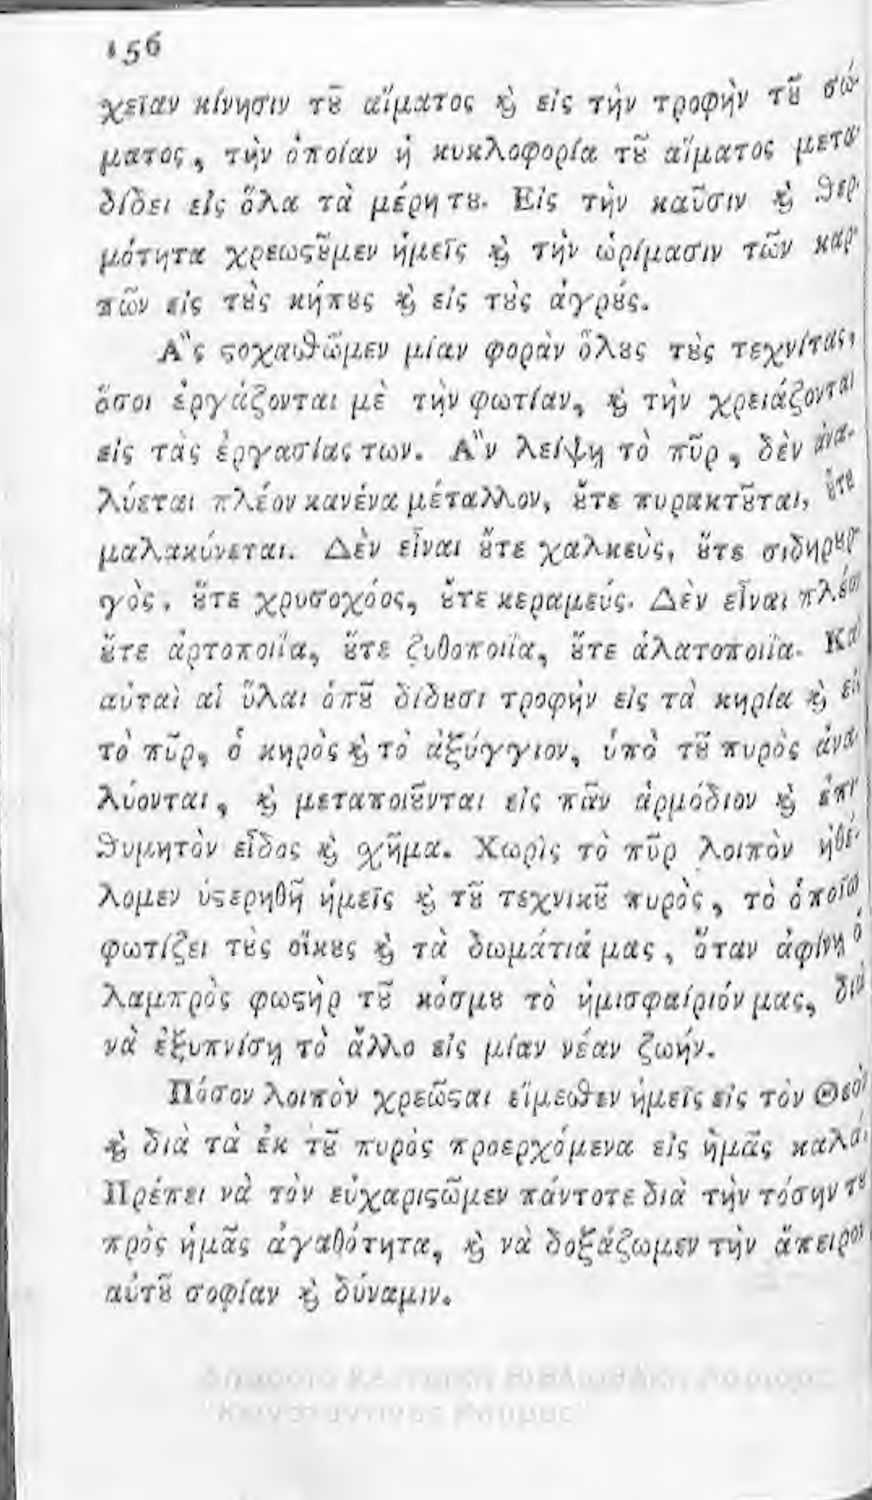 156
χεῖαν κίνησιν τȣ͂ αἵματος ϗ̀ εἰς τὴν τροφὴν τȣ͂ σώ-
ματος, τὴν ὁποίαν ἡ κυκλοφορία τȣ͂ αἵματος μετα-
δίδει εἰς ὅλα τὰ μέρη τȣ. Εἰς τὴν καῦσιν ϗ̀ θερ-
μότητα χρεωςȣ͂μεν ἡμεῖς ϗ̀ τὴν ὡρίμασιν τῶν καρ-
πῶν εἰς τȣ̀ς κήπȣς ϗ̀ εἰς τȣ̀ς ἀγρȣ́ς.
Ἂς ςοχασθῶμεν μίαν φορὰν ὅλȣς τȣ̀ς τεχνίτας,
ὅσοι ἐργάζονται μὲ τὴν φωτίαν, ϗ̀ τὴν χρειάζονται
εἰς τὰς ἐργασίας των. Ἂν λείψῃ τὸ πῦρ, δὲν ἀνα-
λύεται πλέον κανένα μέταλλον, ȣ̓́τε πυρακτȣ͂ται, ȣ̓́τε
μαλακύνεται. Δὲν εἶναι ȣ̓́τε χαλκεὺς, ȣ̓́τε σιδηρȣρ-
γὸς, ȣ̓́τε χρυσοχόος, ȣ̓́τε κεραμεύς. Δὲν εἶναι πλέον
ȣ̓́τε ἀρτοποιΐα, ȣ̓́τε ζυθοποιΐα, ȣ̓́τε ἁλατοποιΐα. Καὶ
αὐταὶ αἱ ὕλαι ὁπȣ͂ δίδȣσι τροφὴν εἰς τὰ κηρία ϗ̀ εἰς
τὸ πῦρ, ὁ κηρὸς ϗ̀ τὸ ἀξύγγιον, ὑπὸ τȣ͂ πυρὸς ἀνα-
λύονται, ϗ̀ μεταποιȣ͂νται εἰς πᾶν ἁρμόδιον ϗ̀ ἐπι-
θυμητὸν εἶδος ϗ̀ σχῆμα. Χωρὶς τὸ πῦρ λοιπὸν ἠθέ-
λομεν ὑςερηθῆ ἡμεῖς ϗ̀ τȣ͂ τεχνικȣ͂ πυρὸς, τὸ ὁποῖον
φωτίζει τȣ̀ς οἴκȣς ϗ̀ τὰ δωμάτιά μας, ὅταν ἀφίνῃ ὁ
λαμπρὸς φωςὴρ τȣ͂ κόσμȣ τὸ ἡμισφαίριόν μας, διὰ
νὰ ἐξυπνίσῃ τὸ ἄλλο εἰς μίαν νέαν ζωήν.
Πόσον λοιπὸν χρεῶςαι εἴμεσθεν ἡμεῖς εἰς τὸν Θεὸν
ϗ̀ διὰ τὰ ἐκ τȣ͂ πυρὸς προερχόμενα εἰς ἡμᾶς καλά.
Πρέπει νὰ τὸν εὐχαριςῶμεν πάντοτε διὰ τὴν τόσην τȣ
πρὸς ἡμᾶς ἀγαθότητα, ϗ̀ νὰ δοξάζωμεν τὴν ἄπειρον
αὐτȣ͂ σοφίαν ϗ̀ δύναμιν.